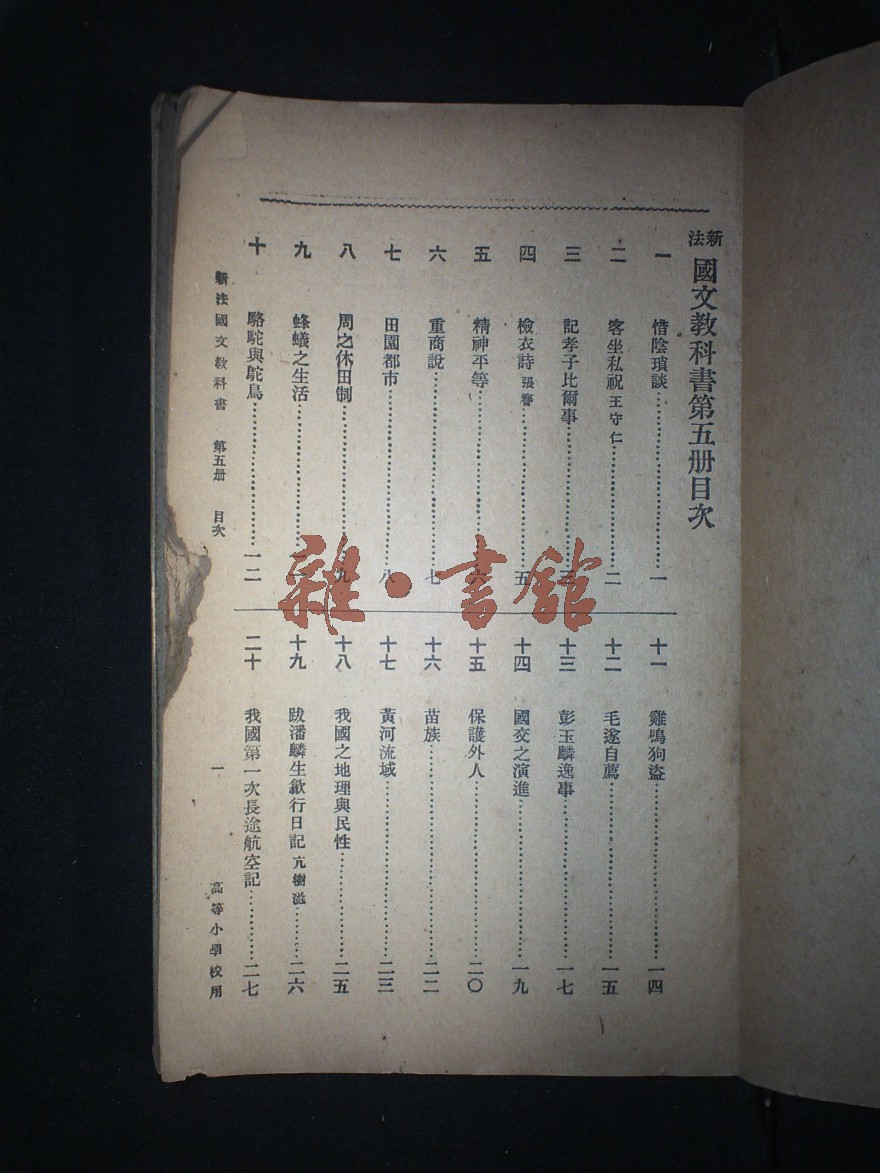 新法國文教科書第五册目次
一 惜陰瑣談 一
二 客坐私祝 王守仁 二
三 記孝子比爾事 三
四 檢衣詩 張謇 五
五 精神平等 六
六 重商說 七
七 田園都市 八
八 周之休田制 九
九 蜂蟻之生活
十 駱駝與鴕鳥 一二
十一 雞鳴狗盜 一四
十二 毛遂自薦 一五
十三 彭玉麟逸事 一七
十四 國交之演進 一九
十五 保護外人 二〇
十六 苗族 二二
十七 黃河流域 二三
十八 我國之地理與民性 二五
十九 跋潘麟生歙行日記 亢樹滋 二六
二十 我國第一次長途航空記 二七
新法國文教科書 第五册 目次 一 高等小學校用
雜·書館